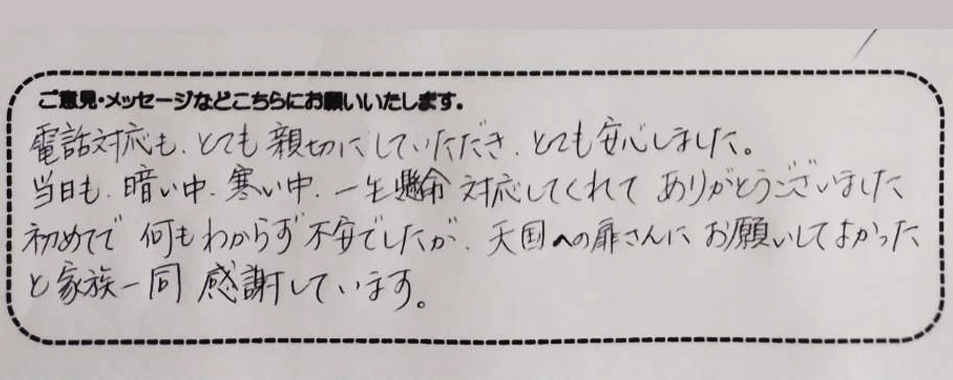 ご意見・メッセージなどこちらにお願いいたします。
電話対応も、とても親切にしていただき、とても安心しました。
当日も、暗い中、寒い中、一生懸命対応してくれてありがとうございました
初めてで何もわからず不安でしたが、天国への扉さんにお願いしてよかった
と家族一同感謝しています。